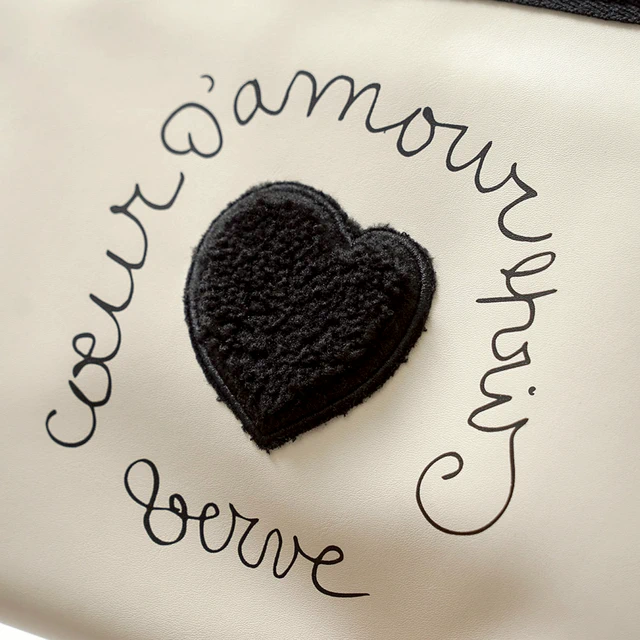 coeur D'amour epris
verve